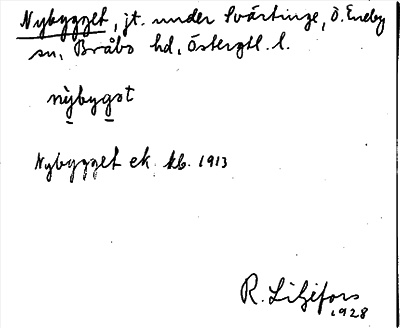 Nybygget, jt. under Svärtinge, Ö. Eneby
sn, Bråbo hd, Östergtl. l.
nybygət
Nybygget ek. kb. 1913
R. Liljefors
1928